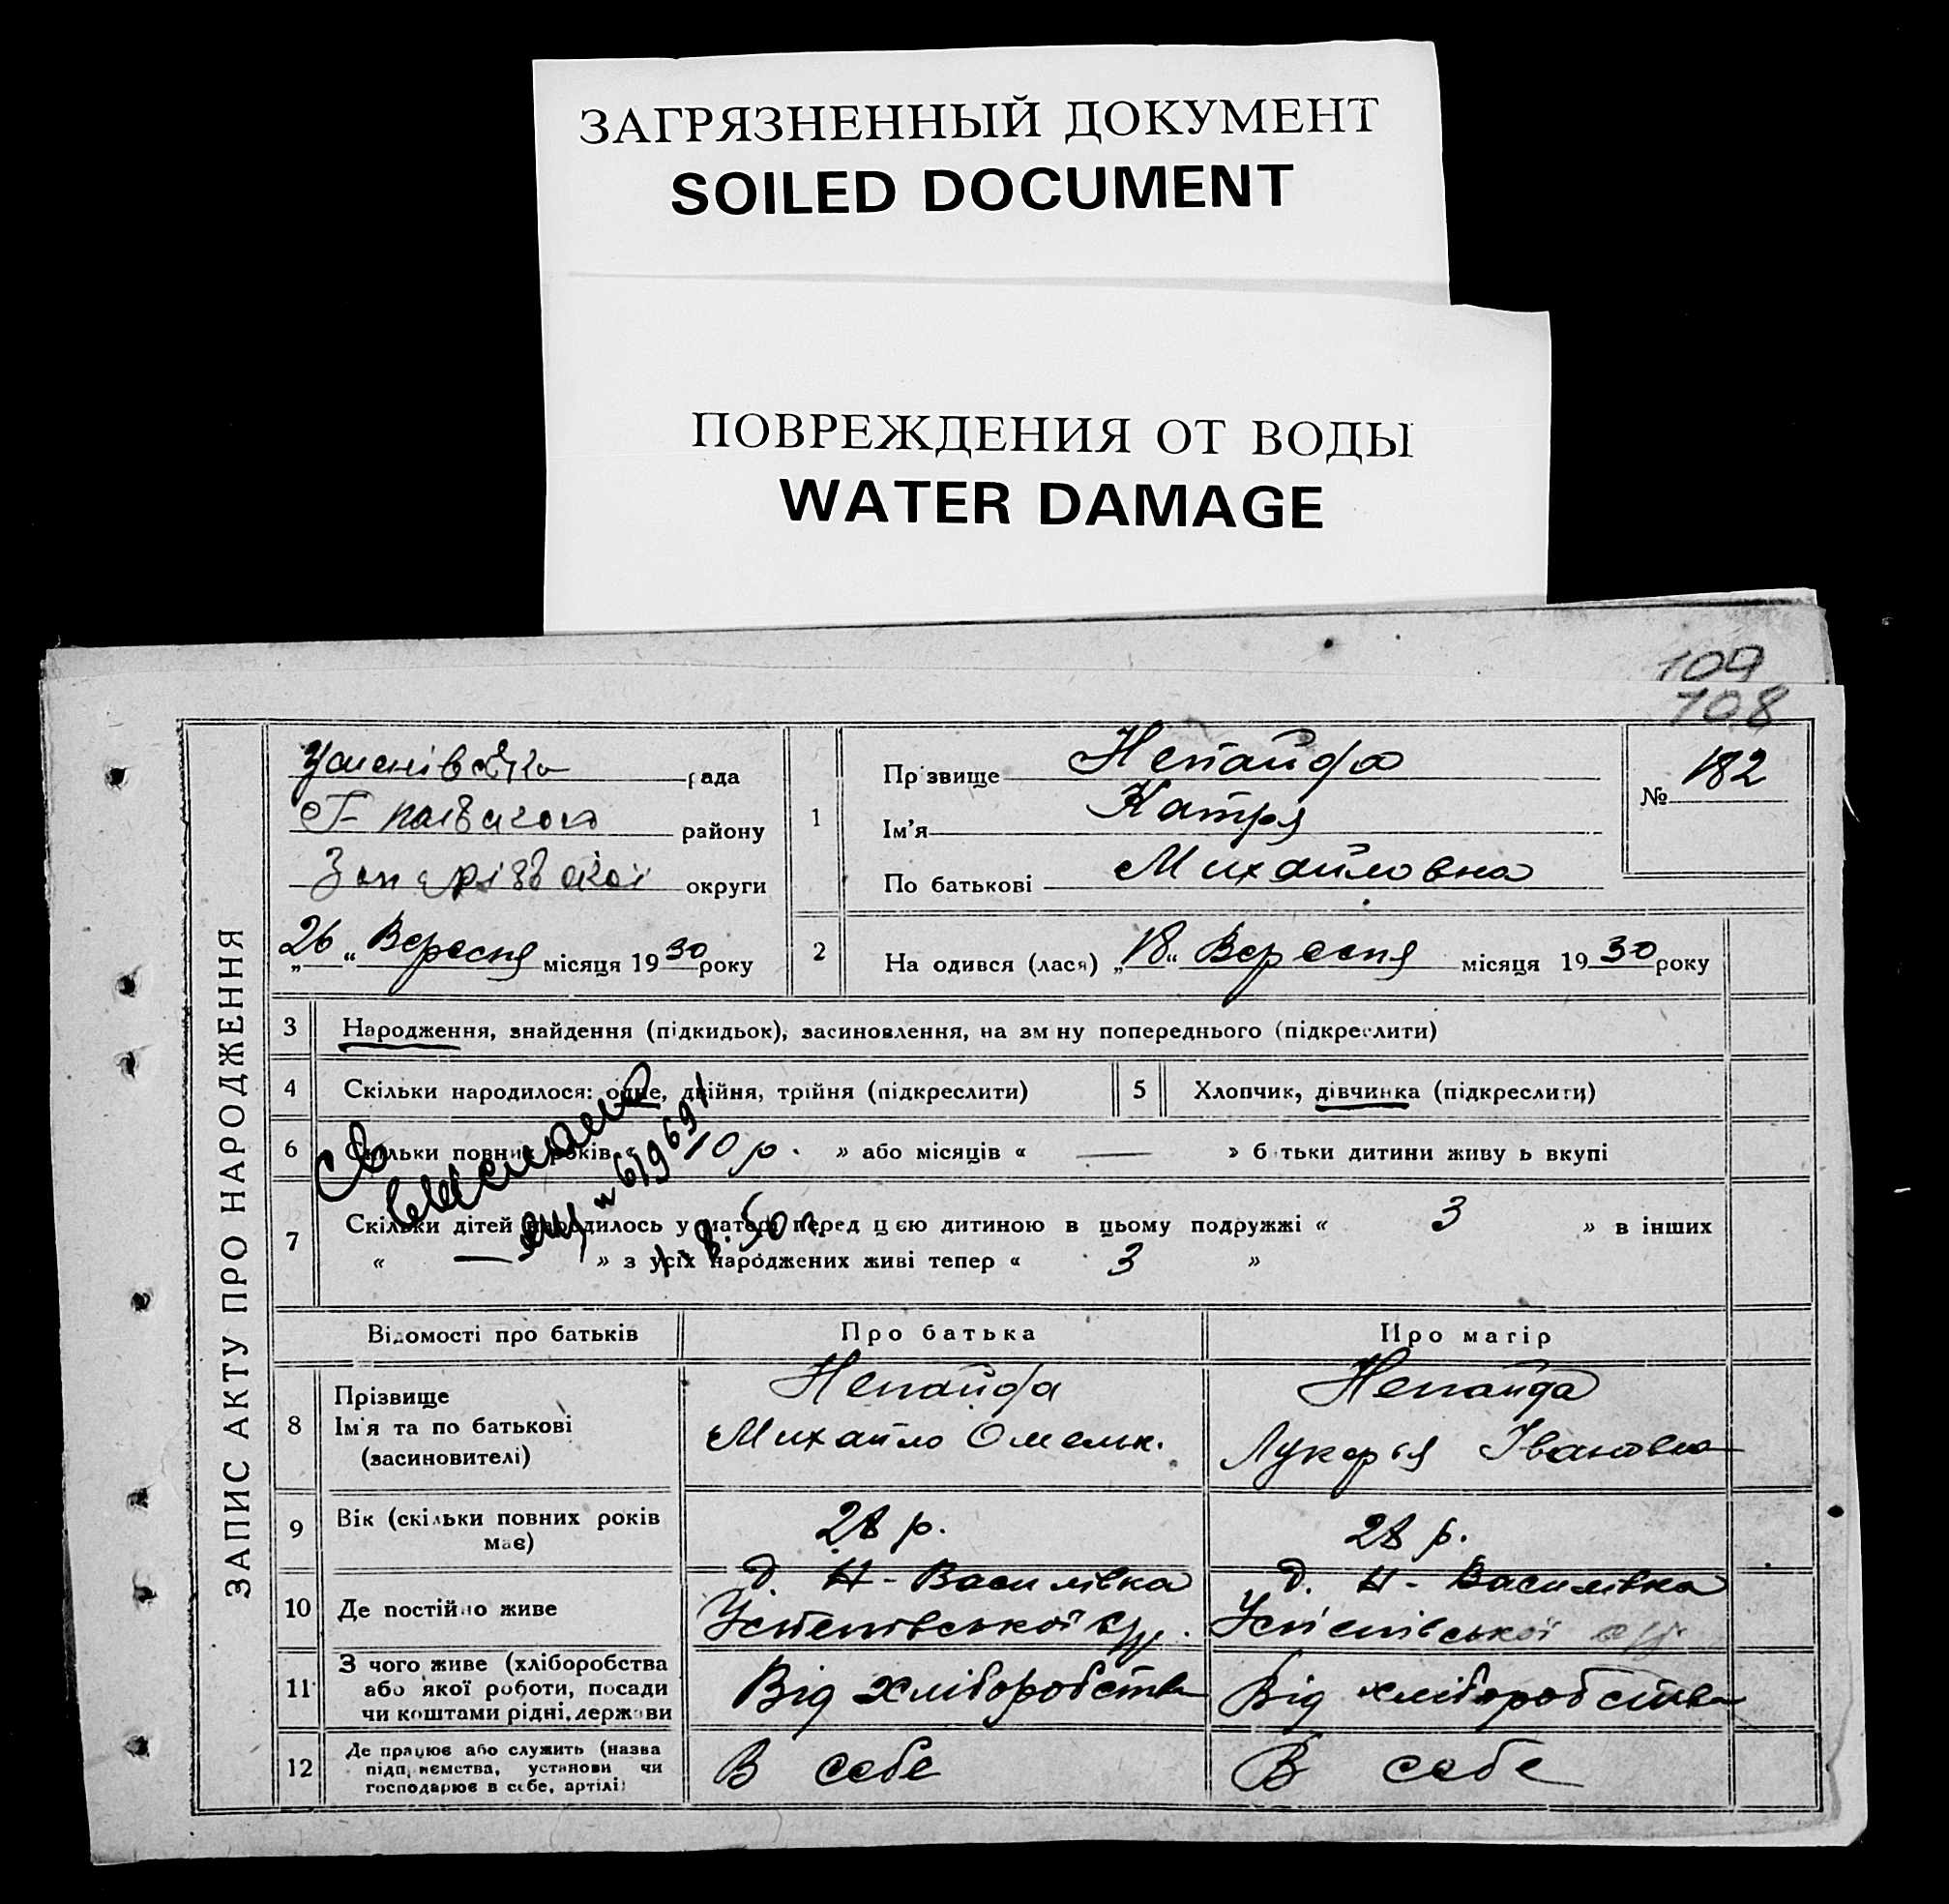 ЗАГРЯЗНЕННЫЙ ДОКУМЕНТ
SOILED DOCUMENT
ПОВРЕЖДЕНИЯ ОТ ВОДЫ
WATER DAMAGE
109
108
ЗАПИС АКТУ ПРО НАРОДЖЕННЯ
рада
району
округи
„26“ Вересня місяця 1930 року
1
Прізвище Непайда
Ім'я Катря
По батькові Михайловна
№ 182
2
На одився (лася) „18“ Вересня місяця 1930 року
3 Народження, знайдення (підкидьок), засиновлення, на зм ну попереднього (підкреслити)
4 Скільки народилося: одне, двійня, трійня (підкреслити)
5 Хлопчик, дівчинка (підкреслити)
6 Скільки повних років 10 р. » або місяців « — » б тьки дитини живу ь вкупі
7 Скільки дітей народилось у матері перед цією дитиною в цьому подружжі « 3 » в інших
« — » з усіх народжених живі тепер « 3 »
Відомості про батьків Про батька Про матір
8 Прізвище
Ім'я та по батькові
(засиновителі)
Непайда
Михайло Омельк.
Непайда
Лукер'я Івановна
9 Вік (скільки повних років
має)
28 р.
28 р.
10 Де постійно живе
д. Н-Василівка
Успенівської с/р.
д. Н-Василівка
Успенівської с/р.
11 З чого живе (хліборобства
або якої роботи, посади
чи коштами рідні, держави
Від хліборобства
Від хліборобства
12 Де працює або служить (назва
підп, иємства, установи чи
господарює в себе, артілі)
В себе
В себе